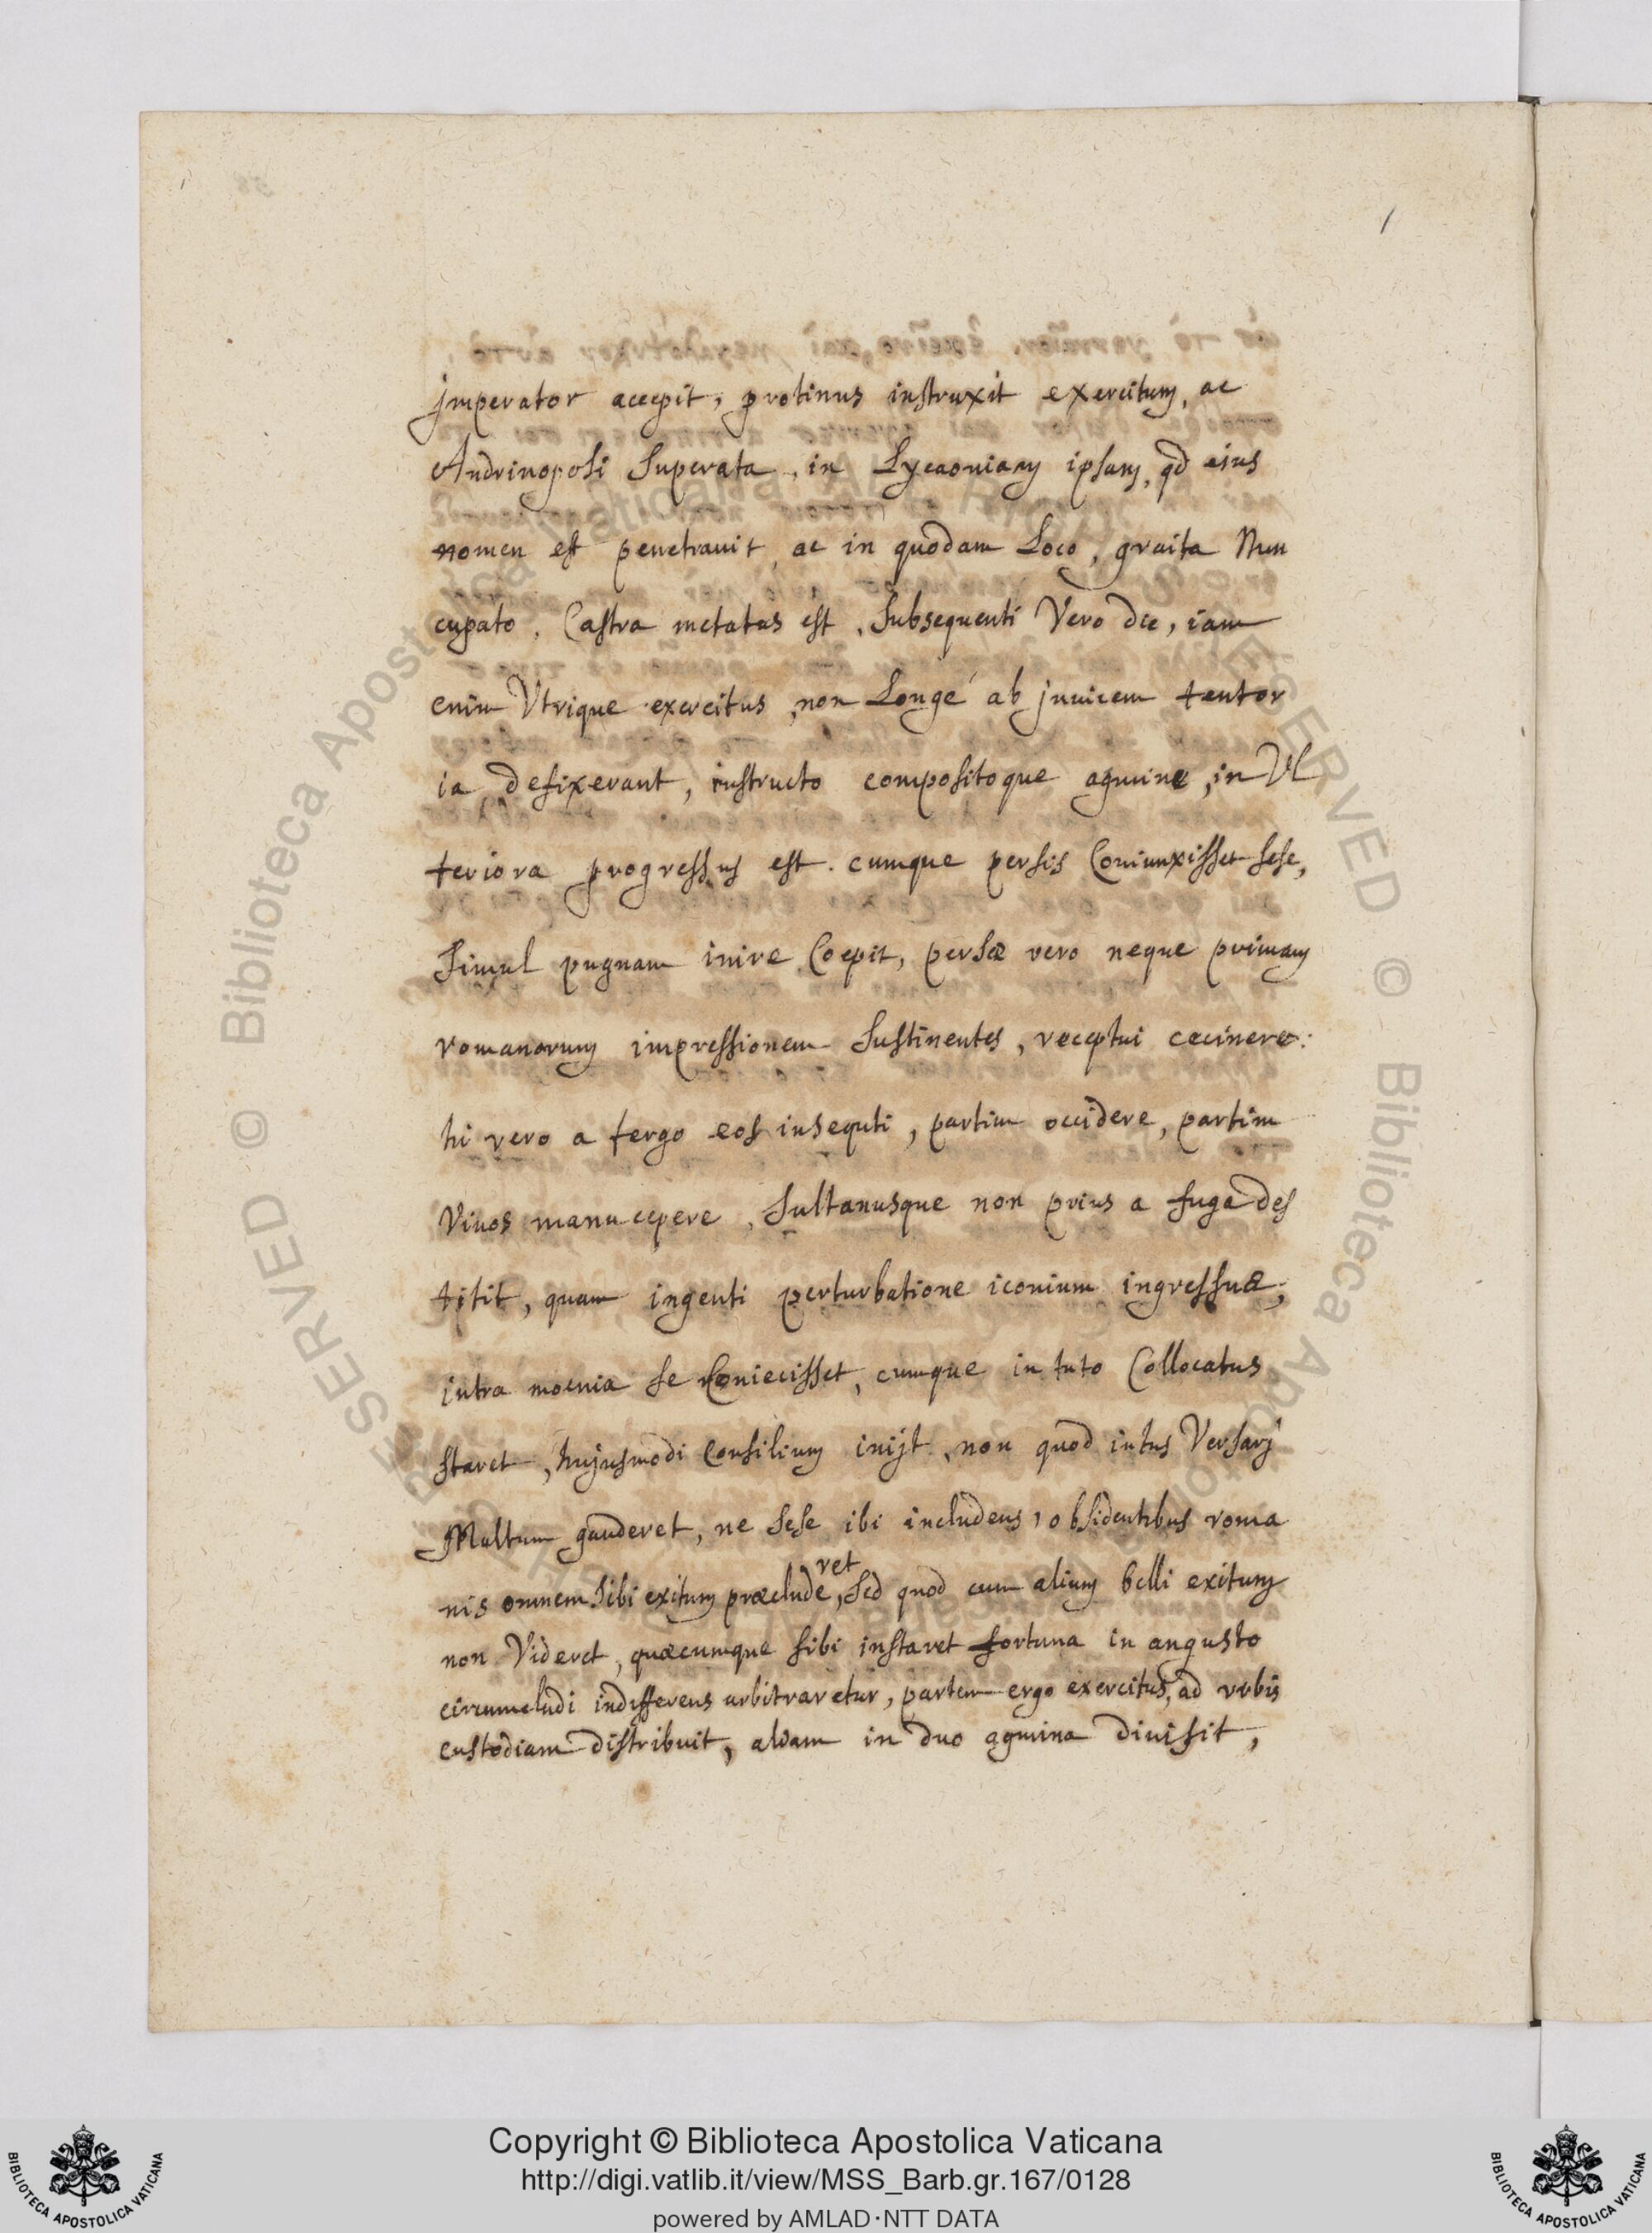 imperator accepit, protinus instruxit exercitum, ac
Andrinopoli superata, in Lycaoniam ipsam, qd eius
nomen est penetrauit, ac in quodam Loco, graita Nun
cupato, Castra metatus est, subsequenti Vero die, iam
enim Vtrique exercitus, non Longe ab jnuicem tentor
ia defixerant, instructo compositoque agmine, in Vl
teriora progressus est. cumque persis Coniunxisset sese,
simul pugnam inire Coepit, persæ vero neque primam
romanorum impressionem sustinentes, receptui cecinere:
hi vero a tergo eos insequti, partim occidere, partim
Viuos manu cepere, Sultanusque non prius a fuga des
titit, quam ingenti perturbatione iconium ingressus,
intra moenia se Coniecisset, cumque in tuto Collocatus
staret, hujusmodi Consilium inijt, non quod intus Versarj
Multum gauderet, ne sese ibi includens, obsidentibus roma
nis omnem sibi exitum præcluderet, sed quod cum alium belli exitum
non Videret, quæcumque sibi instaret fortuna in angusto
circumcludi indifferens arbitraretur, partem ergo exercitus, ad vrbis
custodiam distribuit, aliam in duo agmina diuisit,
Copyright © Biblioteca Apostolica Vaticana
http://digi.vatlib.it/view/MSS_Barb.gr.167/0128
powered by AMLAD·NTT DATA
BIBLIOTECA APOSTOLICA VATICANA
BIBLIOTECA APOSTOLICA VATICANA